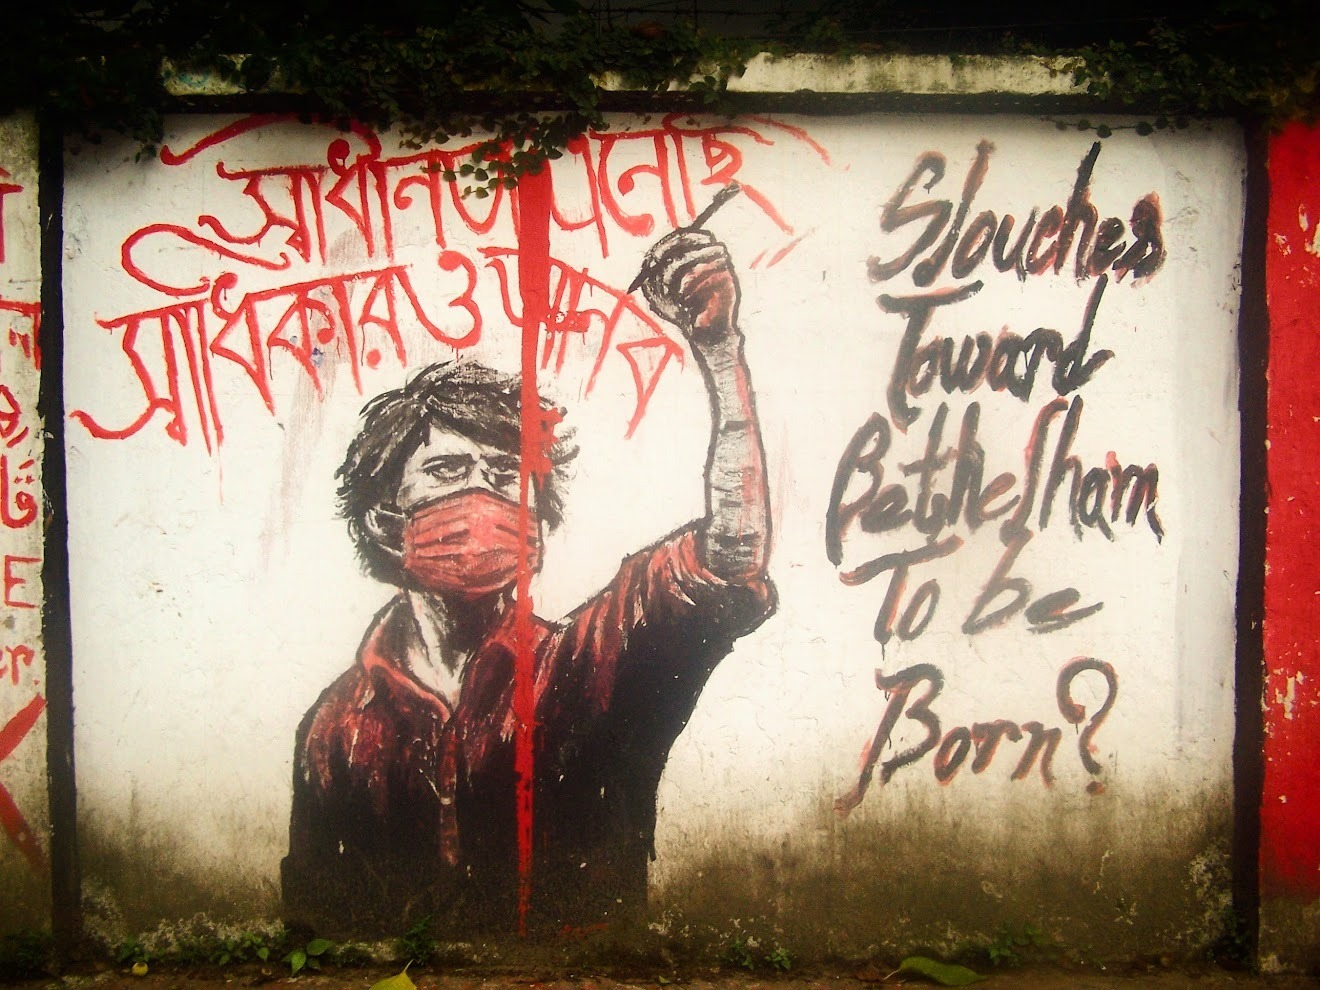 স্বাধীনতা এনেছি
স্বাধিকারও আনব
Slouches
Toward
Bethelham
To be
Born?
E
er.